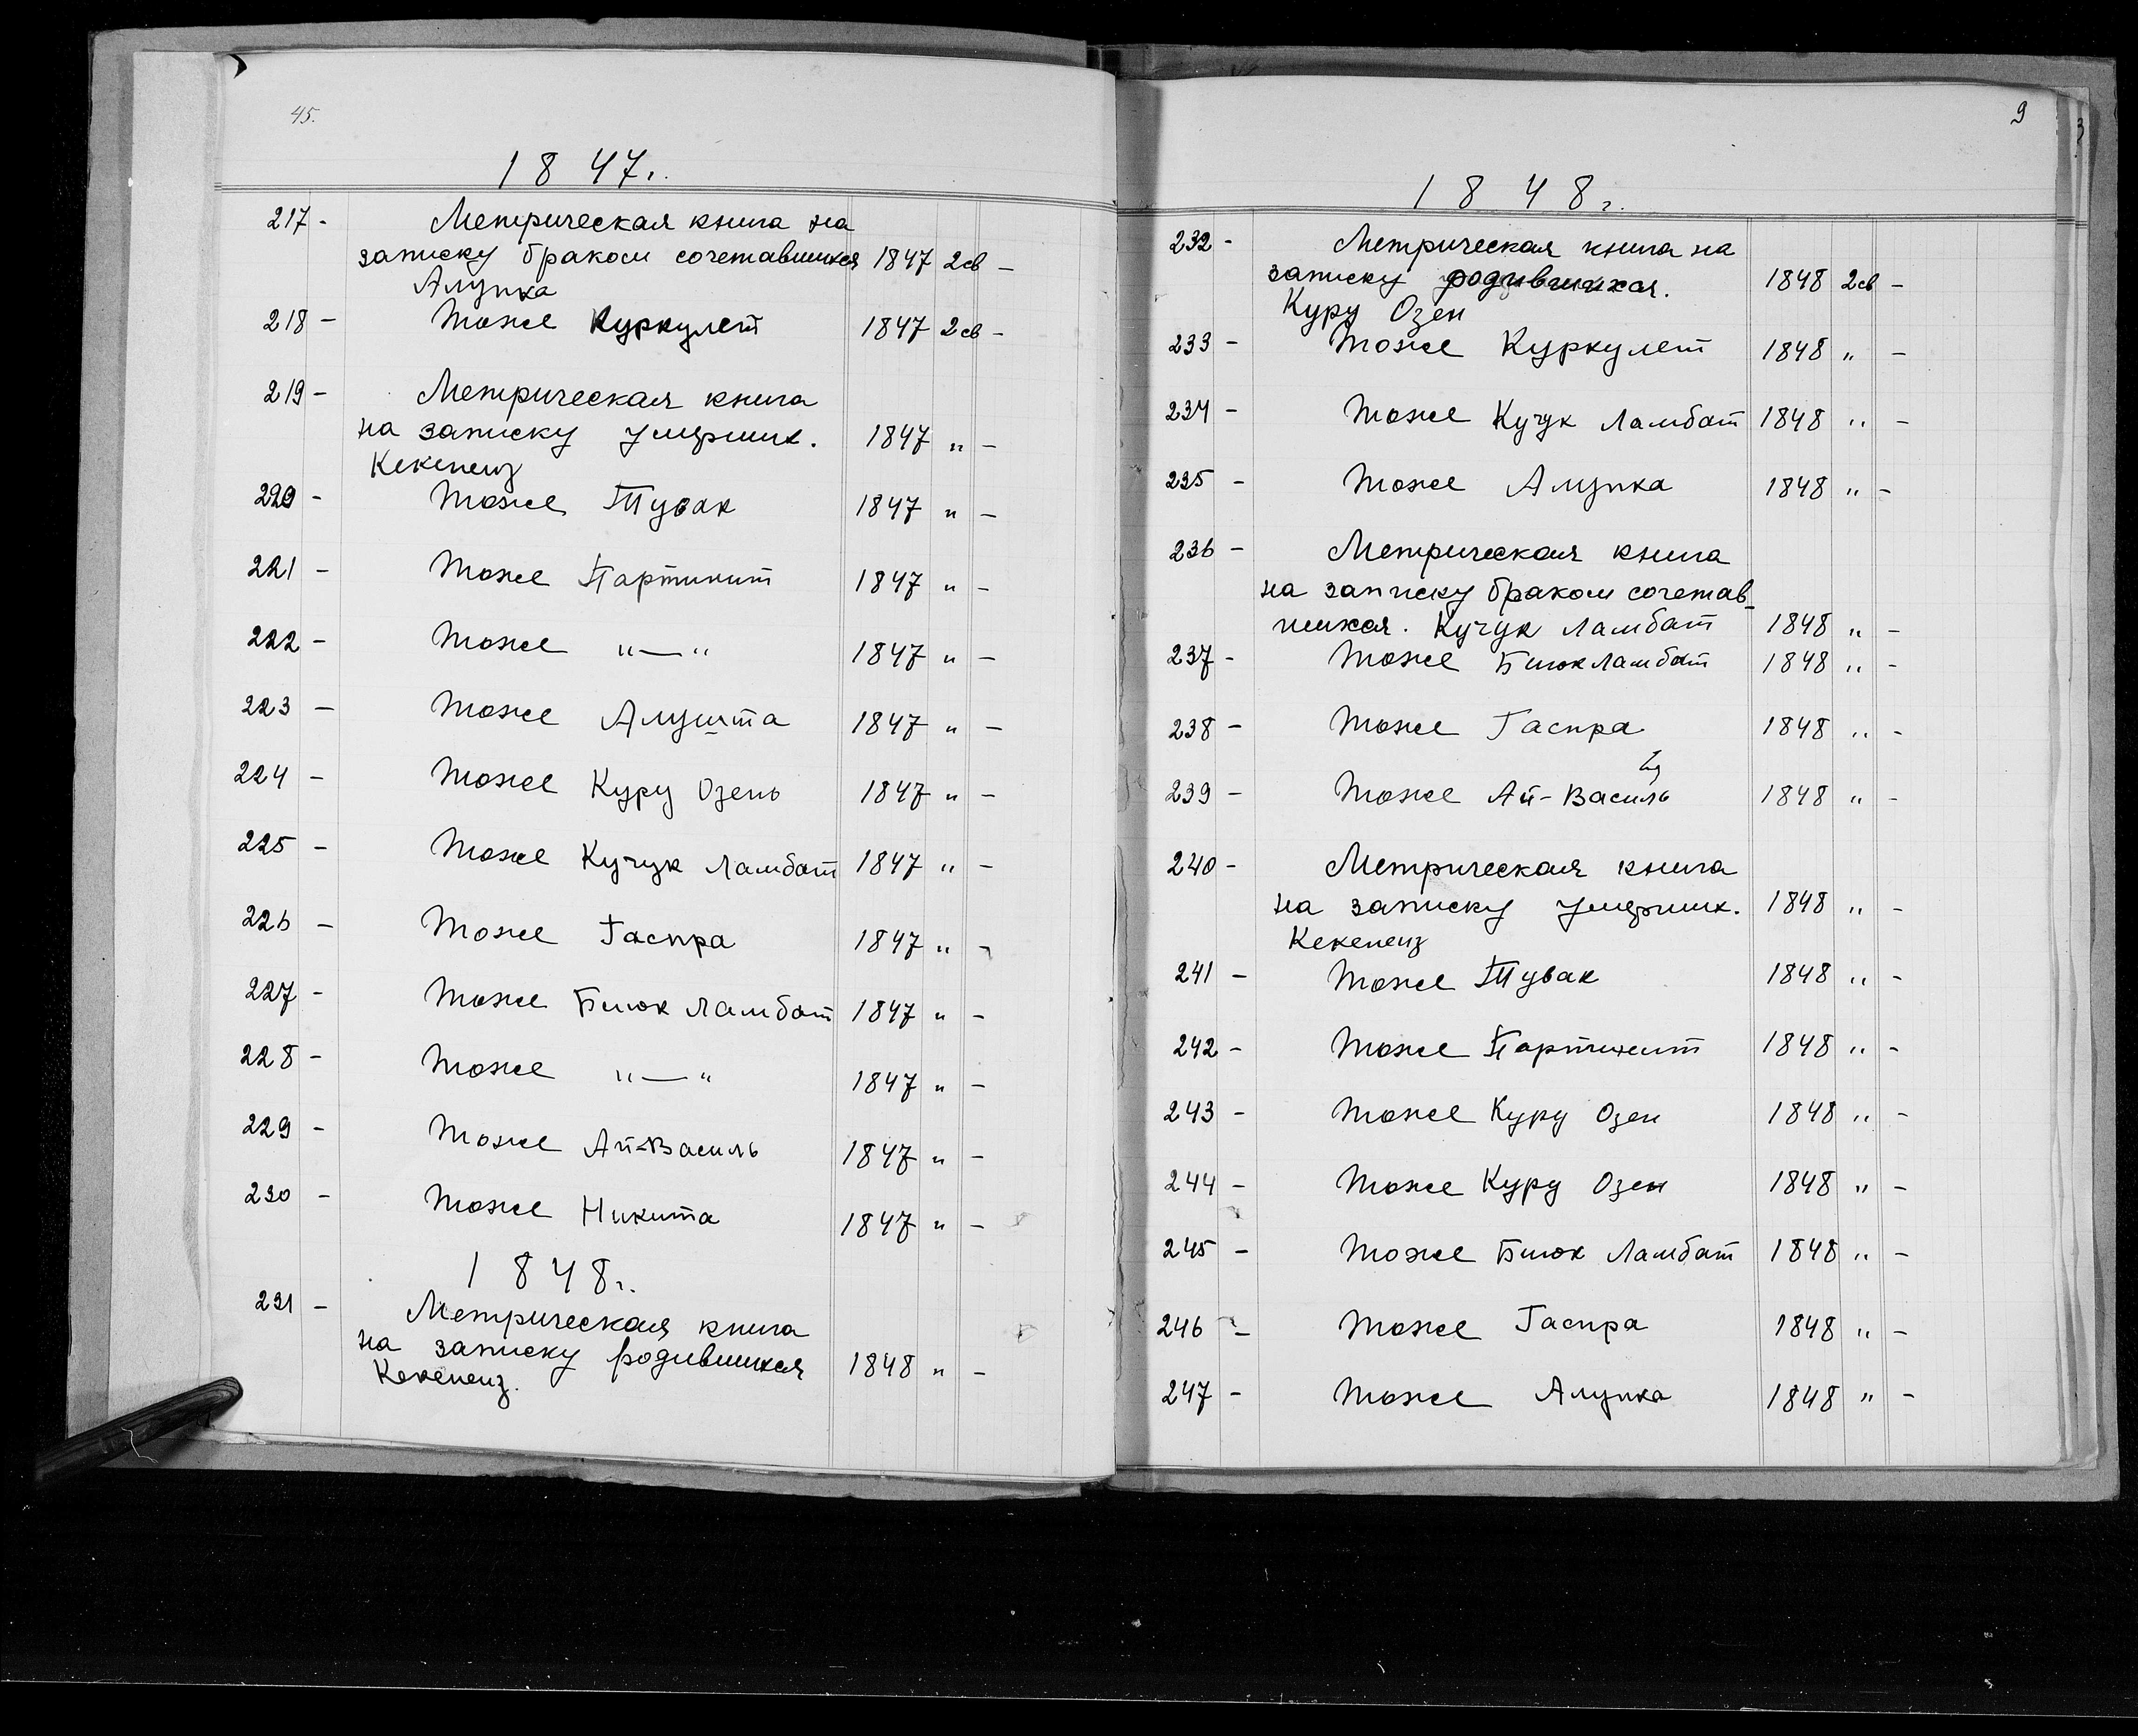 45.
1847г.
217 - Метрическая книга на
записку браком сочетавшихся 1847 2св -
Алупка
218 - Тоже Куркулет 1847 2св -
219 - Метрическая книга
на записку умерших. 1847 " -
Кекенеиз
220 - Тоже Тувак 1847 " -
221 - Тоже Партинит 1847 " -
222 - Тоже "—" 1847 " -
223 - Тоже Алушта 1847 " -
224 - Тоже Куру Озень 1847 " -
225 - Тоже Кучук Ламбат 1847 " -
226 - Тоже Гаспра 1847 " -
227 - Тоже Биюк Ламбат 1847 " -
228 - Тоже "—" 1847 " -
229 - Тоже Ай-Василь 1847 " -
230 - Тоже Никита 1847 " -
1848г.
231 - Метрическая книга
на записку родившихся 1848 " -
Кекенеиз.
9
1848г.
232 - Метрическая книга на
записку родившихся. 1848 2св -
Куру Озен
233 - Тоже Куркулет 1848 " -
234 - Тоже Кучук Ламбат 1848 " -
235 - Тоже Алупка 1848 " -
236 - Метрическая книга
на записку браком сочетав-
шихся. Кучук Ламбат 1848 " -
237 - Тоже Биюк Ламбат 1848 " -
238 - Тоже Гаспра 1848 " -
239 - Тоже Ай-Василь 1848 " -
240 - Метрическая книга
на записку умерших. 1848 " -
Кекенеиз
241 - Тоже Тувак 1848 " -
242 - Тоже Партинит 1848 " -
243 - Тоже Куру Озен 1848 " -
244 - Тоже Куру Озен 1848 " -
245 - Тоже Биюк Ламбат 1848 " -
246 - Тоже Гаспра 1848 " -
247 - Тоже Алупка 1848 " -